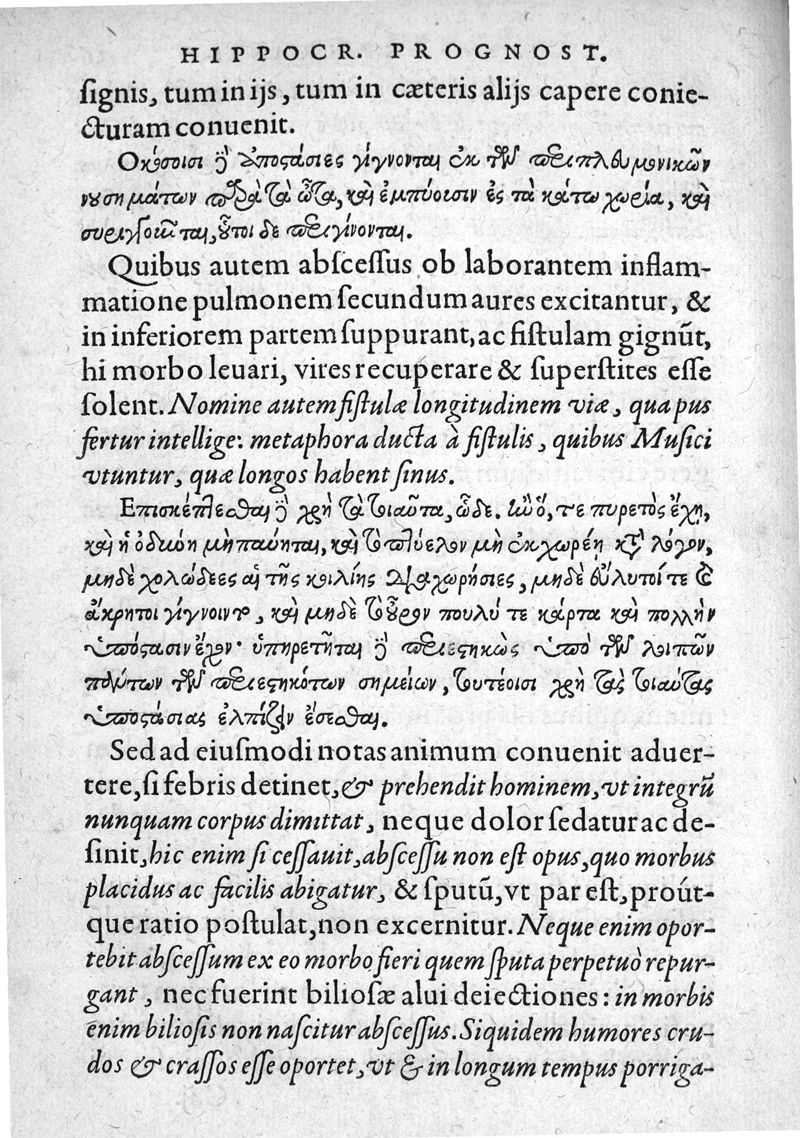 HIPPOCR. PROGNOST.
ſignis, tum in ijs, tum in cæteris alijs capere conie-
cturam conuenit.
Οκόσοισι δ᾽ ἀποστάσιες γίγνονται ἐκ τῶν περιπλευμονικῶν
νουσημάτων παρὰ τὰ ὦτα, καὶ ἐμπύουσιν ἐς τὰ κάτω χωρία, καὶ
συριγγοῦνται, οὗτοι δὲ περιγίνονται.
Quibus autem abſceſſus ob laborantem inflam-
matione pulmonem ſecundum aures excitantur, &
in inferiorem partem ſuppurant, ac fiſtulam gignũt,
hi morbo leuari, vires recuperare & ſuperſtites eſſe
ſolent. Nomine autem fiſtulæ longitudinem viæ, qua pus
fertur intellige: metaphora ducta à fiſtulis, quibus Muſici
vtuntur, quæ longos habent ſinus.
Επισκέπτεσθαι δὲ χρὴ τὰ τοιαῦτα, ὧδε. ἢν ὅ, τε πυρετὸς ἔχῃ,
καὶ ἡ ὀδύνη μὴ παύηται, καὶ τὸ πτύελον μὴ ἐκχωρέῃ κατὰ λόγον,
μηδὲ χολώδεες αἱ τῆς κοιλίης διαχωρήσιες, μηδὲ εὔλυτοί τε καὶ
ἄκρητοι γίγνοιντο, καὶ μηδὲ τὸ οὖρον πουλύ τε κάρτα καὶ πολλὴν
ὑπόστασιν ἔχον· ὑπηρετῆται δὲ περιεστηκὼς ὑπὸ τῶν λοιπῶν
πάντων τῶν περιεστηκότων σημείων, τουτέοισι χρὴ τὰς τοιαύτας
ἀποστάσιας ἐλπίζειν ἔσεσθαι.
Sed ad eiuſmodi notas animum conuenit aduer-
tere, ſi febris detinet, & prehendit hominem, vt integrũ
nunquam corpus dimittat, neque dolor ſedatur ac de-
ſinit, hic enim ſi ceſſauit, abſceſſu non eſt opus, quo morbus
placidus ac facilis abigatur, & ſputũ, vt par eſt, proút-
que ratio poſtulat, non excernitur. Neque enim opor-
tebit abſceſſum ex eo morbo fieri quem ſputa perpetuò repur-
gant, nec fuerint bilioſæ alui deiectiones: in morbis
enim bilioſis non naſcitur abſceſſus. Siquidem humores cru-
dos & craſſos eſſe oportet, vt & in longum tempus porriga-